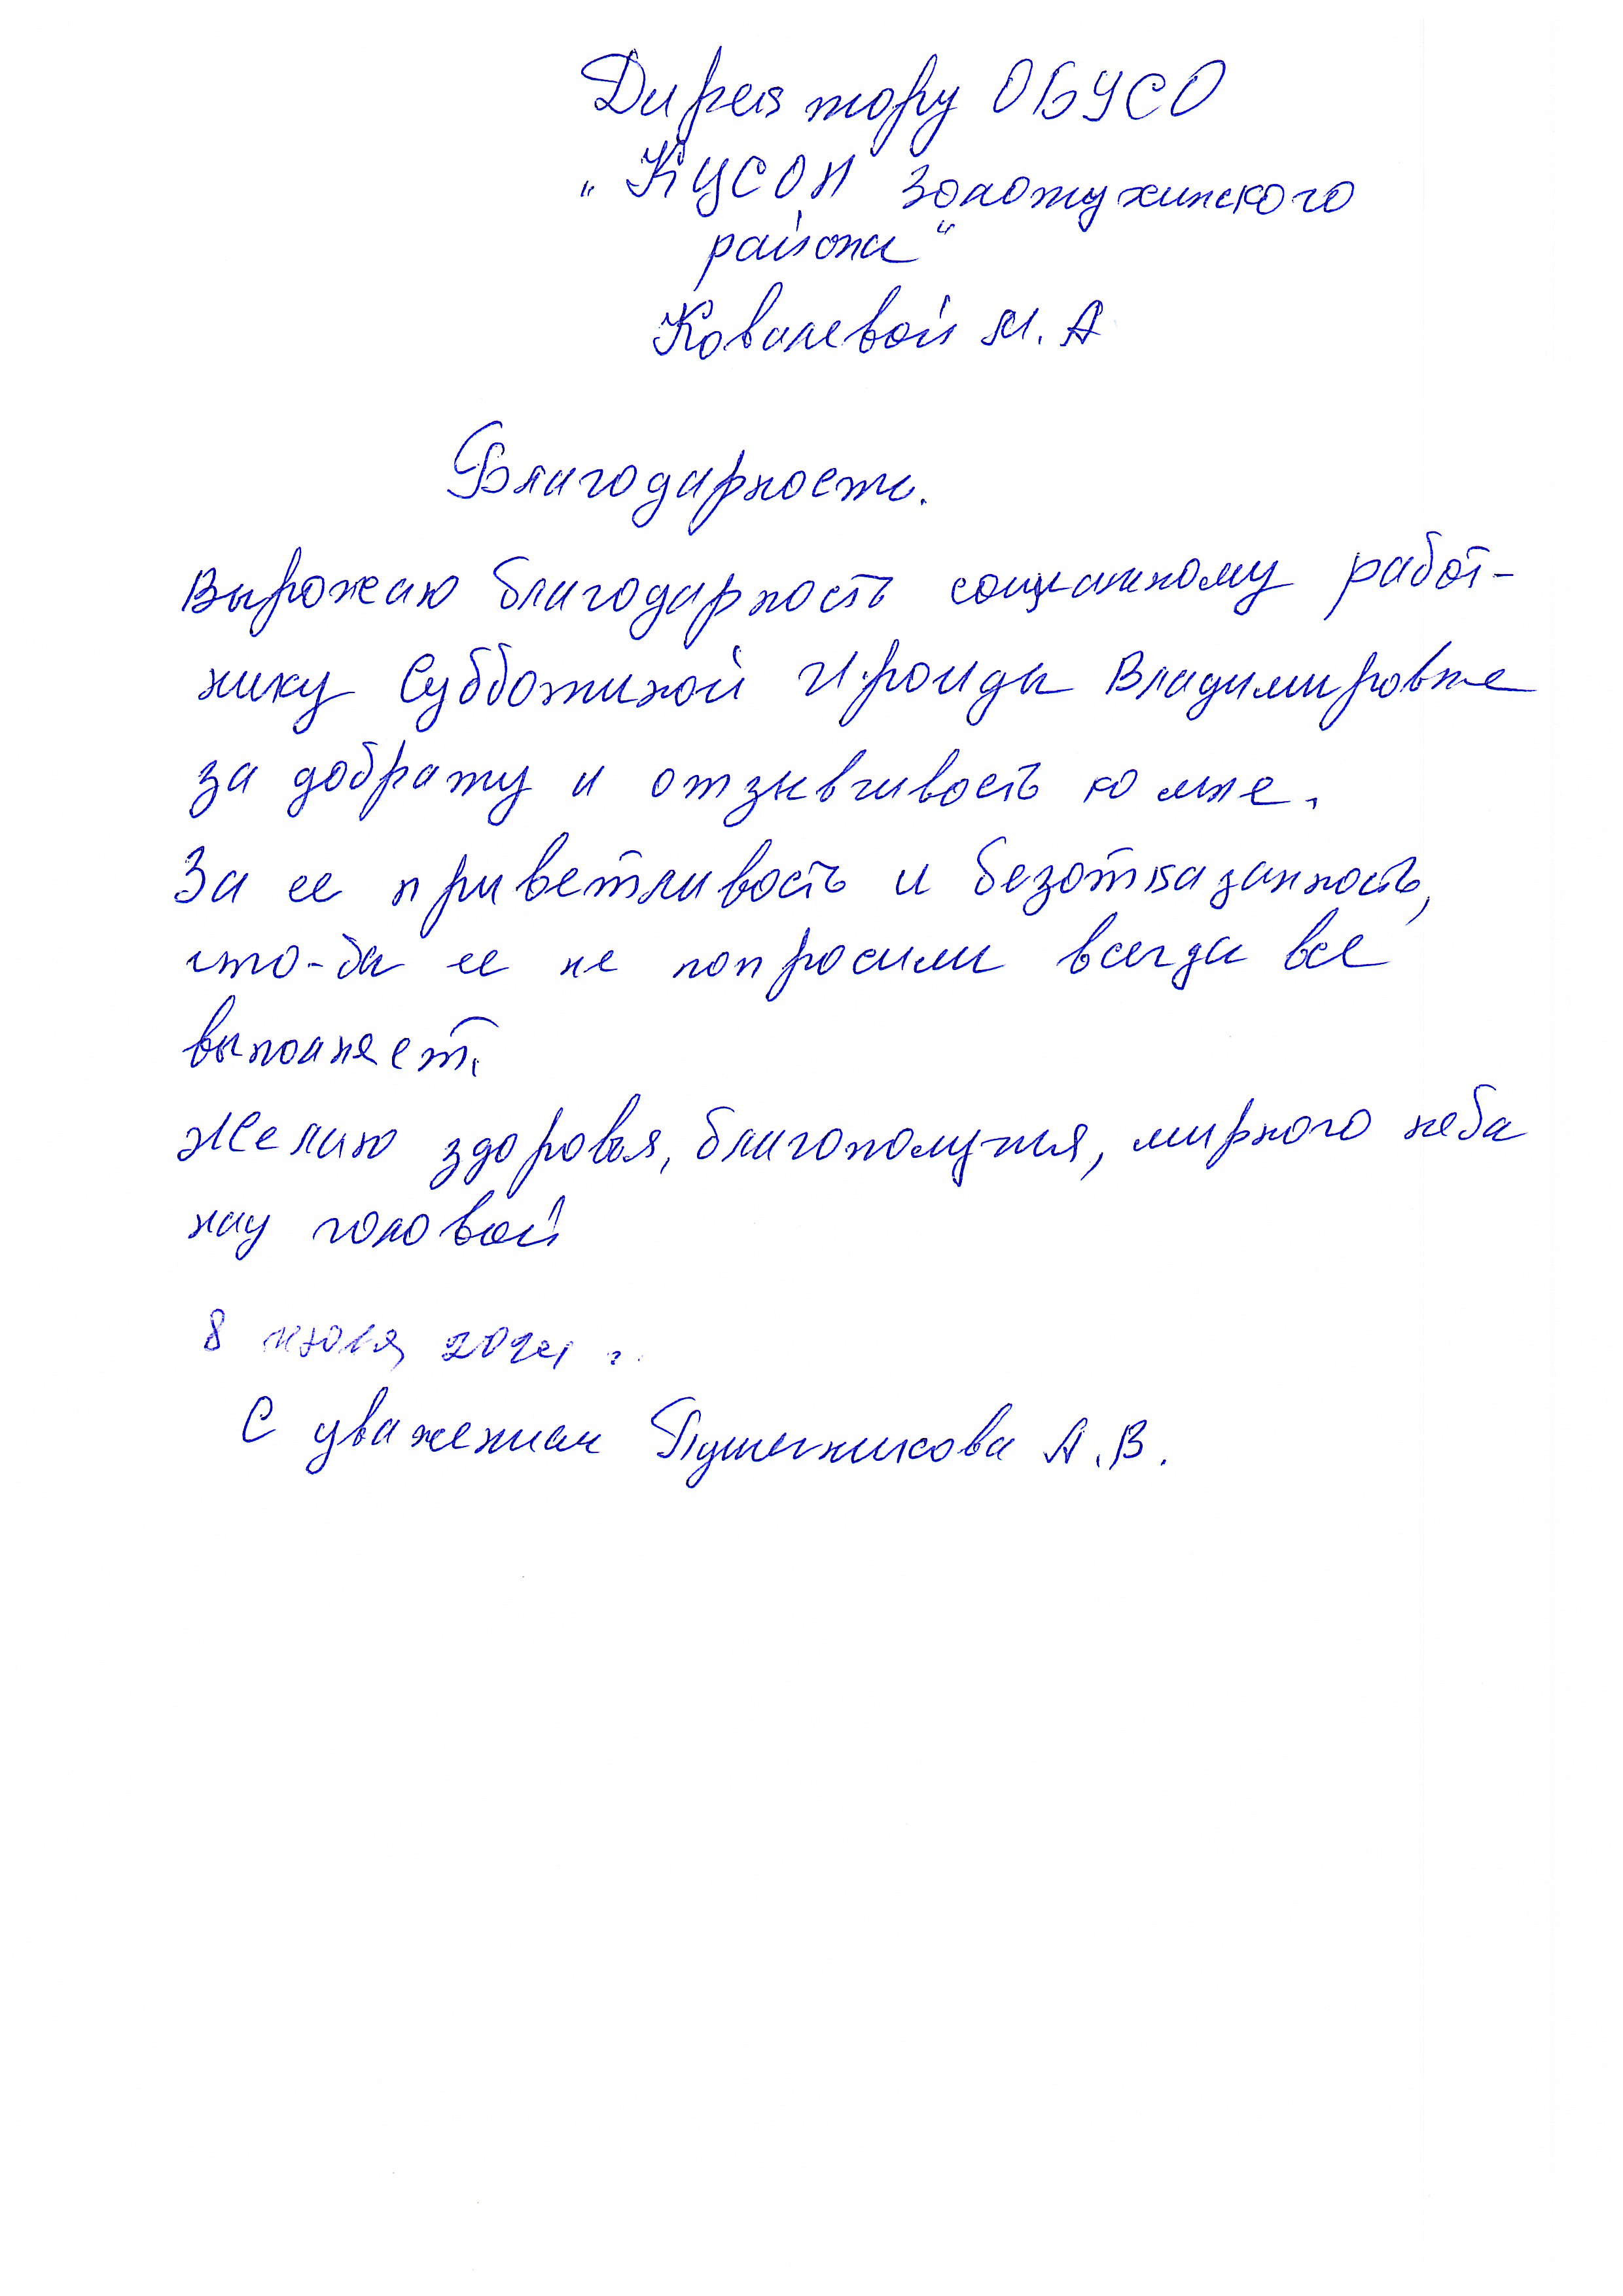 Директору ОБУСО
„КЦСОН Золотухинского
района“
Ковалевой М.А
Благодарность.
Вырожаю благодарность социальному работ-
нику Субботиной Ироиды Владимировне
за доброту и отзывчивость ко мне.
За ее приветливость и безотказанность,
что-бы ее не попросили всегда все
выполняет.
Желаю здоровья, благополучия, мирного неба
над головой
8 июля г.
С уважением Пушечникова А.В.